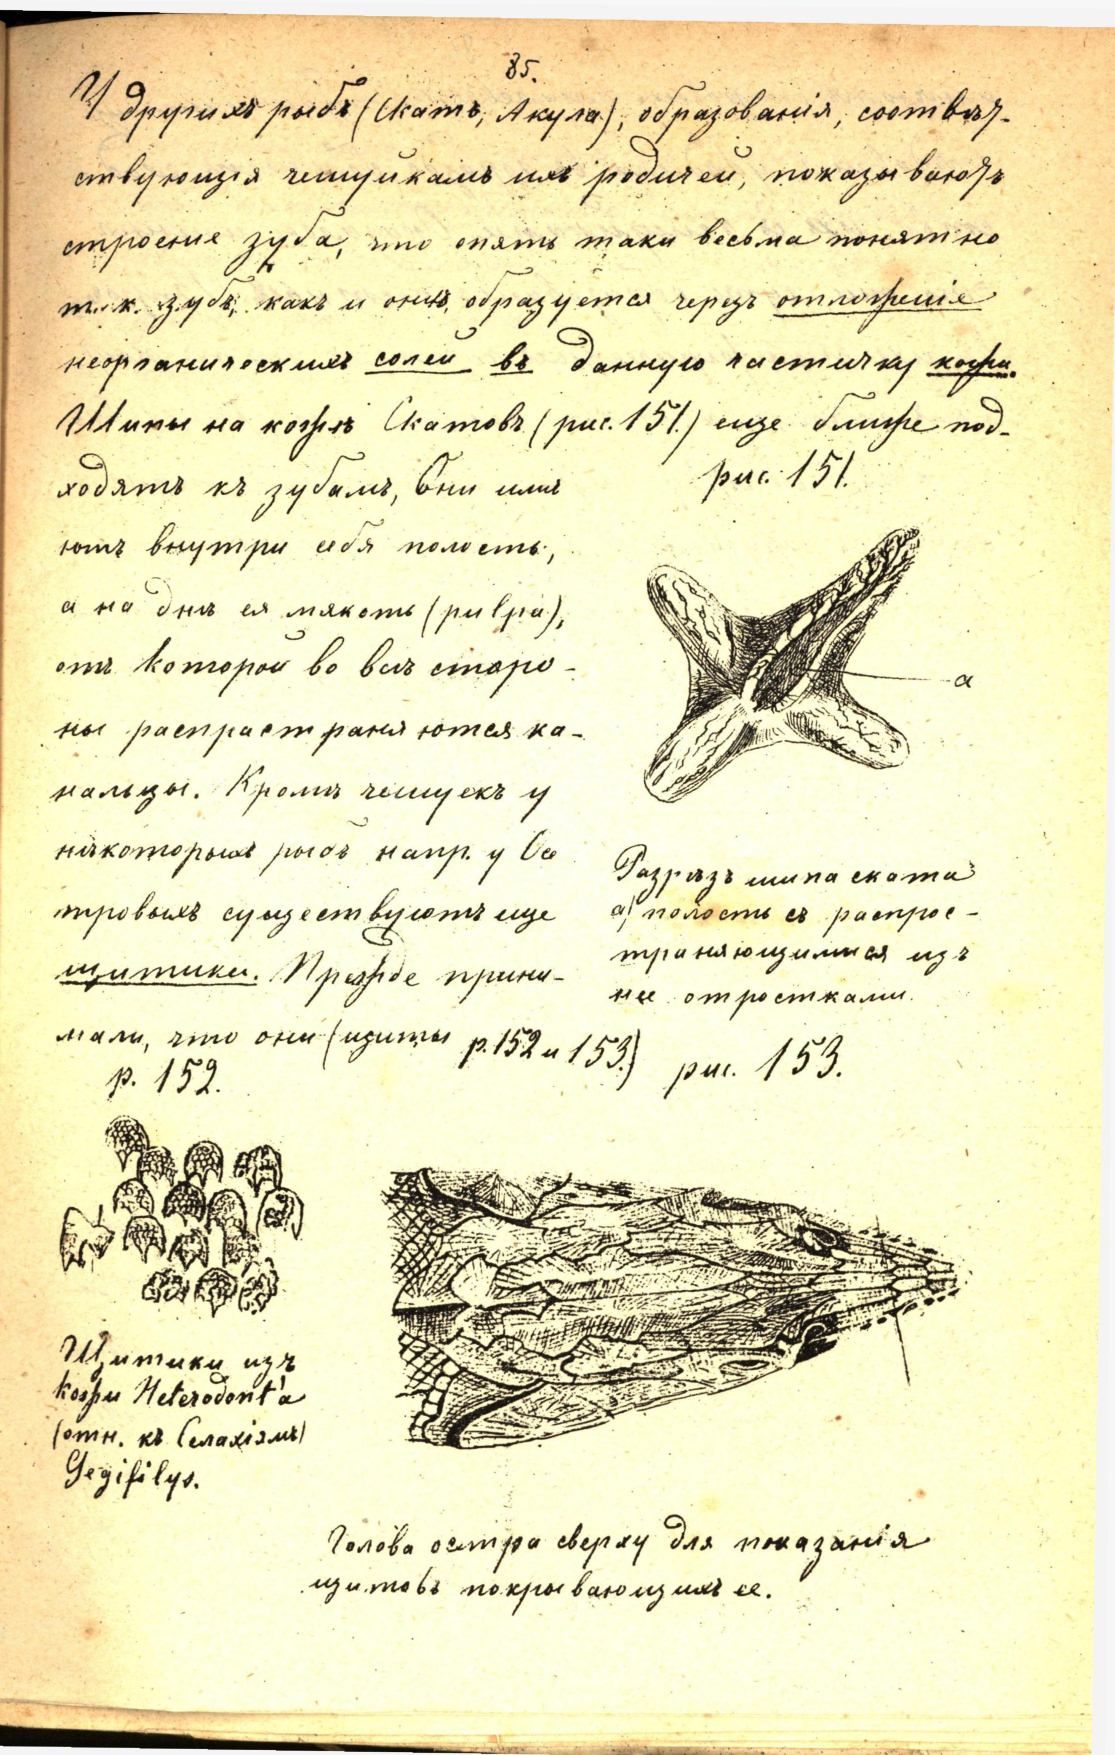 85.
У другихъ рыбъ (Скатъ, Акула), образованія, соотвѣт-
ствующія чешуйкамъ ихъ родичей, показываютъ
строеніе зуба, что опять таки весьма понятно
т. к. зубъ, какъ и онѣ, образуется черезъ отложеніе
неорганическихъ солей въ данную частичку кожи.
Шипы на кожѣ Скатовъ (рис. 151.) еще ближе под-
ходятъ къ зубамъ, Они имѣ
ютъ внутри себя полость,
а на днѣ ея мякоть (pulpa),
отъ которой во всѣ старо-
ны распрастраняются ка-
нальцы. Кромѣ чешуекъ у
нѣкоторыхъ рыбъ напр. у Осе
тровыхъ существуютъ еще
щитики. Прежде прини-
мали, что они (щиты р. 152 и 153.)
рис. 151.
а
Разрѣзъ шипа ската
а) полость съ распрос-
траняющимися изъ
нее отростками.
р. 152.
Щитики изъ
кожи Heterodont'а
(отн. къ Селахіямъ)
рис. 153.
Голова осетра сверху для показанія
щитовъ покрывающихъ ее.